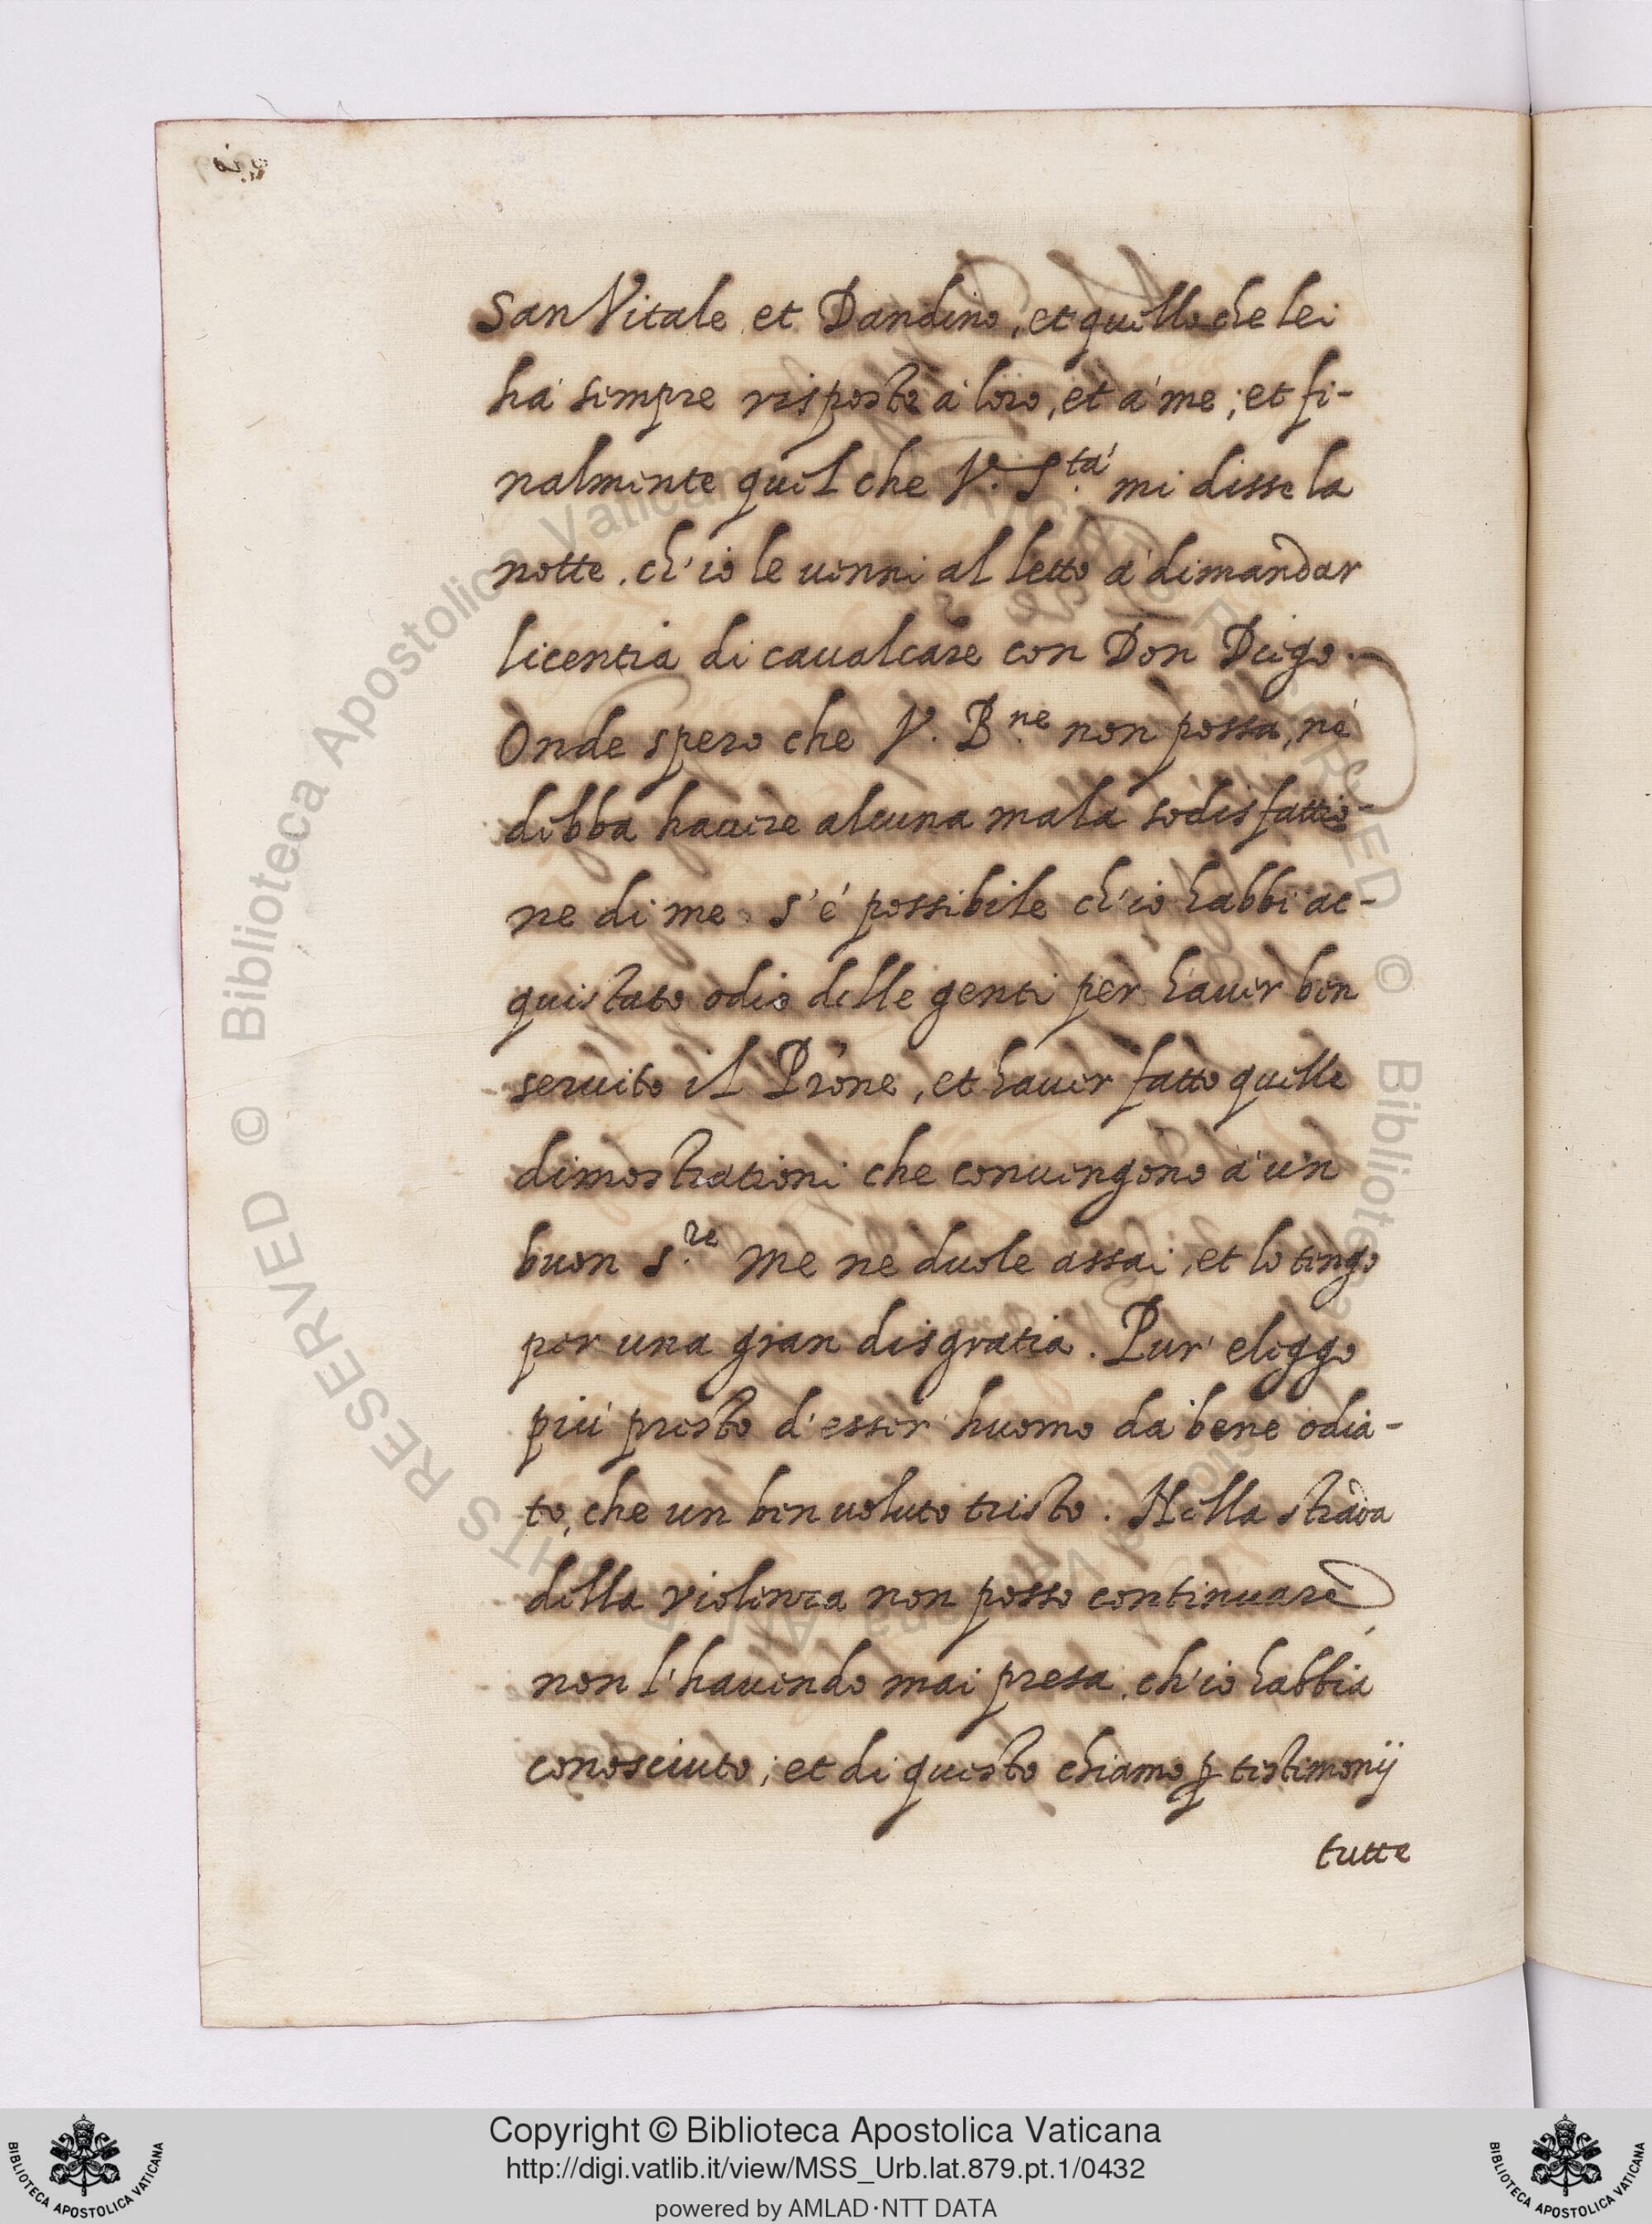 San Vitale et Dandino, et quello che lei
há sempre risposto á loro, et á me; et fi-
nalmente quel che V. S.tá mi disse la
notte, ch'io le venni al letto á dimandar
licentia di cavalcare con Don Diego.
Onde spero che V. B.ne non possa, né
debba havere alcuna mala sodisfattio-
ne di me. S'é possibile ch'io habbi ac-
quistato odio delle genti per haver ben
servito il Prone, et haver fatto quelle
dimostrationi che convengono á un
buon S.re me ne duole assai, et lo tengo
per una gran disgratia. Pur eleggo
piú presto d'esser huomo da bene odia-
to, che un ben voluto tristo. Nella strada
della violenza non posso continuare,
non l'havendo mai presa, ch'io habbia
conosciuto; et di questo chiamo p testimonij
tutte
Copyright © Biblioteca Apostolica Vaticana
http://digi.vatlib.it/view/MSS_Urb.lat.879.pt.1/0432
powered by AMLAD·NTT DATA
BIBLIOTECA APOSTOLICA VATICANA
BIBLIOTECA APOSTOLICA VATICANA